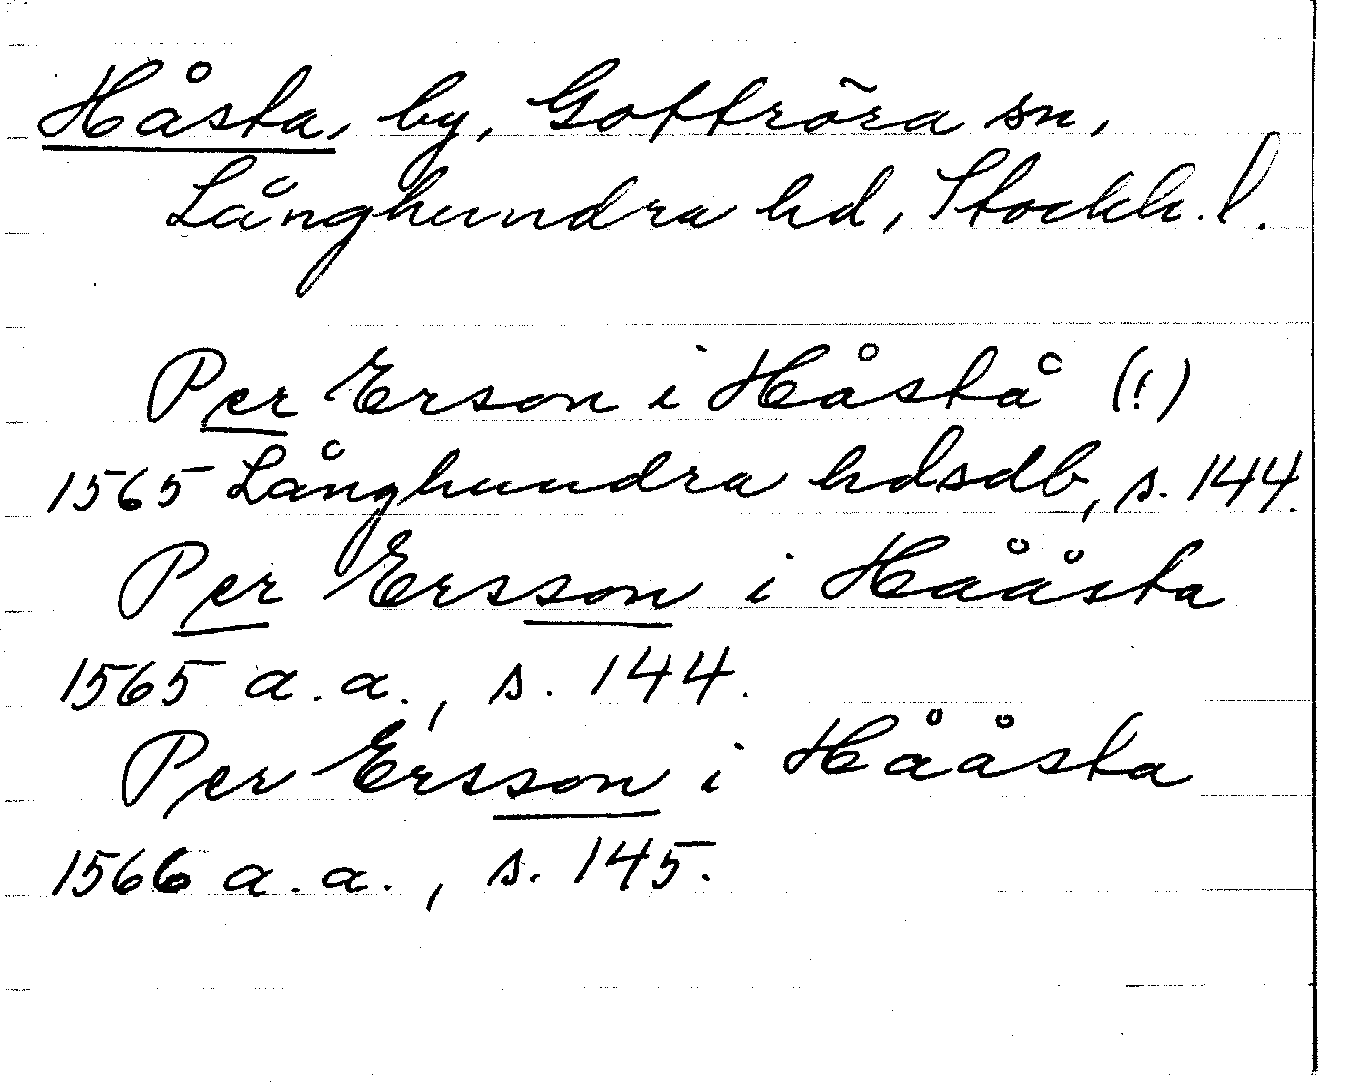 Håsta, by, Gottröra sn,
Långhundra hd, Stockh. l.
Per Erson i Håstå (!)
1565 Långhundra hdsdb, s. 144.
Per Ersson i Hååsta
1565 a.a., s. 144.
Per Ersson i Hååsta
1566 a.a., s. 145.